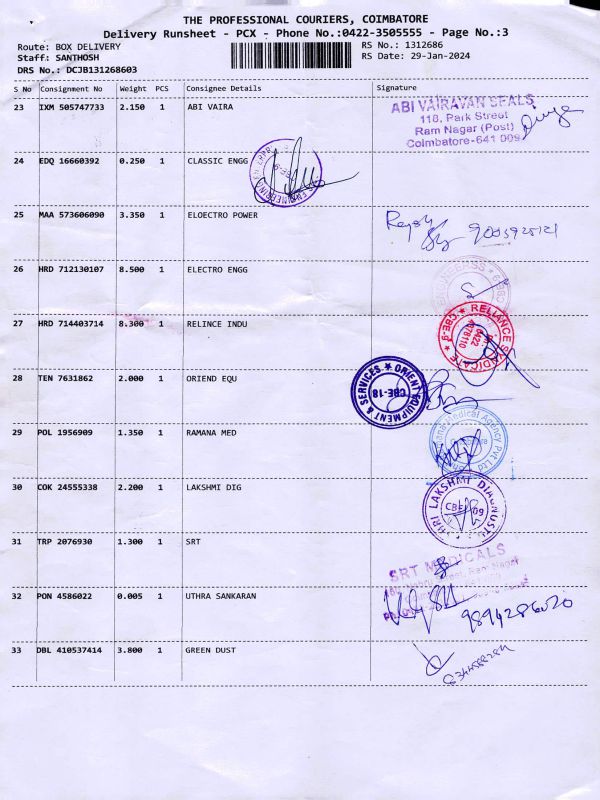 THE PROFESSIONAL COURIERS, COIMBATORE
Delivery Runsheet - PCX - Phone No.:0422-3505555 - Page No.:3
Route: BOX DELIVERY RS No.: 1312686
Staff: SANTHOSH RS Date: 29-Jan-2024
DRS No.: DCJB131268603
S No Consignment No Weight PCS Consignee Details Signature
23 IXM 505747733 2.150 1 ABI VAIRA
ABI VAIRAVAN SEALS
118, Park Street
Ram Nagar (Post)
Coimbatore-641 009
24 EDQ 16660392 0.250 1 CLASSIC ENGG
25 MAA 573606090 3.350 1 ELOECTRO POWER
26 HRD 712130107 8.500 1 ELECTRO ENGG
27 HRD 714403714 8.300 1 RELINCE INDU
RELIANCE
CBE-9
0422
28 TEN 7631862 2.000 1 ORIEND EQU
ORIENT EQUIPMENT & SERVICES
CBE-18
29 POL 1956909 1.350 1 RAMANA MED
Medical Agency Pvt Ltd
30 COK 24555338 2.200 1 LAKSHMI DIG
LAKSHMI
31 TRP 2076930 1.300 1 SRT
SRT MEDICALS
Ram Nagar
32 PON 4586022 0.005 1 UTHRA SANKARAN
9894286020
33 DBL 410537414 3.800 1 GREEN DUST